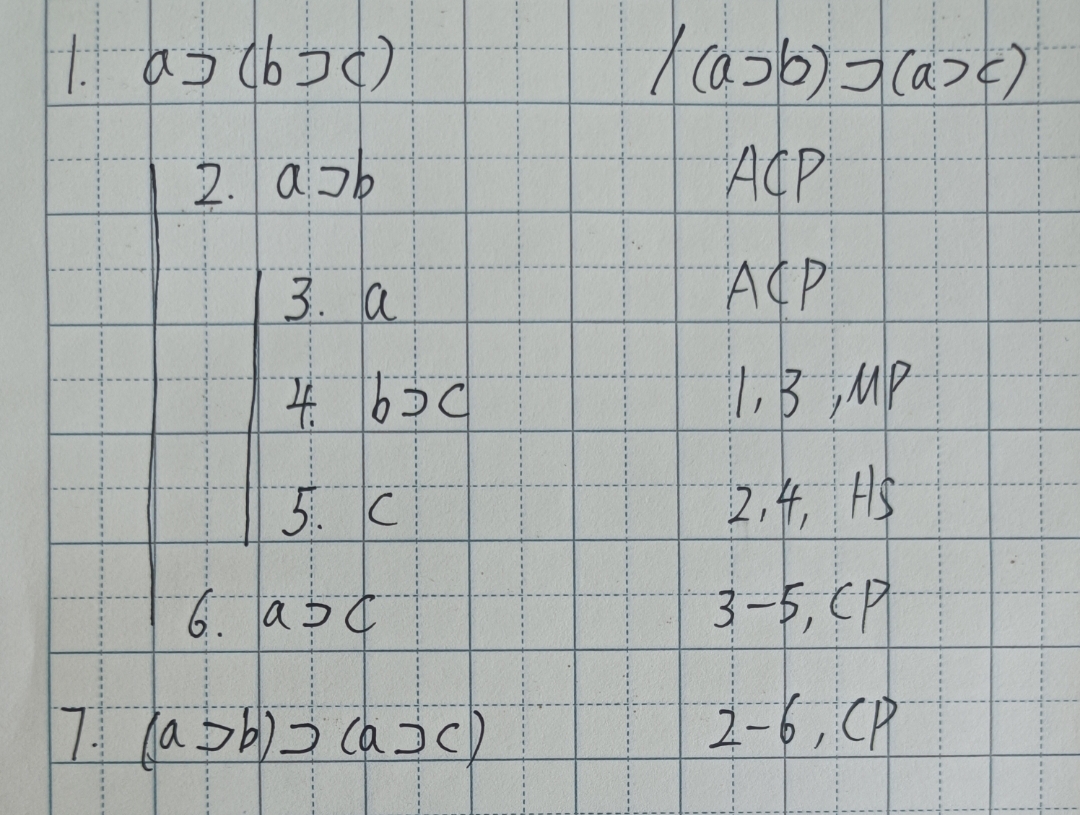 1. a⊃(b⊃c) /(a⊃b)⊃(a⊃c)
2. a⊃b ACP
3. a ACP
4. b⊃c 1,3,MP
5. c 2,4, HS
6. a⊃c 3-5, CP
7. (a⊃b)⊃(a⊃c) 2-6, CP